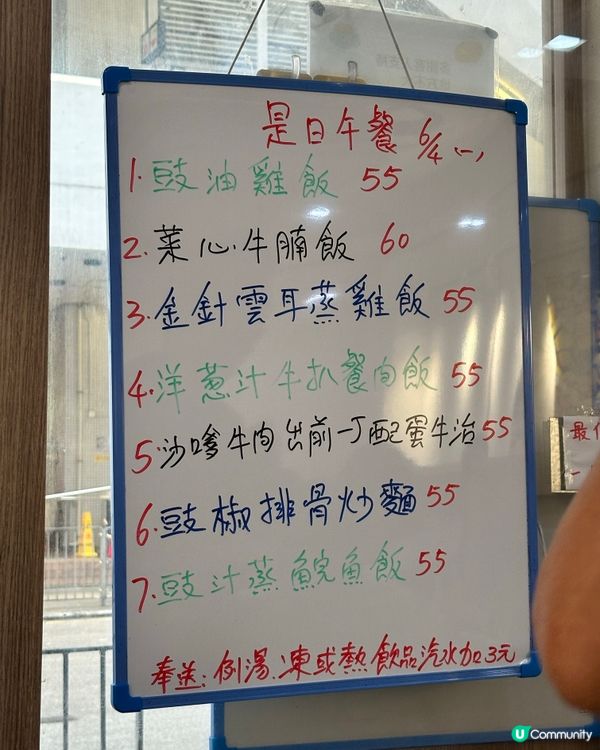 是日午餐 6/4 (一)
1. 豉油雞飯 55
2. 菜心牛腩飯 60
3. 金針雲耳蒸雞飯 55
4. 洋葱汁牛扒餐肉飯 55
5. 沙嗲牛肉出前一丁配蛋牛治 55
6. 豉椒排骨炒麵 55
7. 豉汁蒸鯇魚飯 55
奉送: 例湯、凍或熱飲品汽水加3元
最
一
U Community